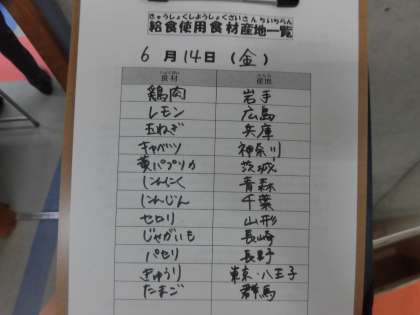 きゅうしょくしようしょくざいさんちいちらん
給食使用食材産地一覧
6月14日(金)
食材 産地
鶏肉 岩手
レモン 広島
玉ねぎ 兵庫
キャベツ 神奈川
黄パプリカ 茨城
にんにく 青森
にんじん 千葉
セロリ 山形
じゃがいも 長崎
パセリ 長野
きゅうり 東京・八王子
たまご 群馬